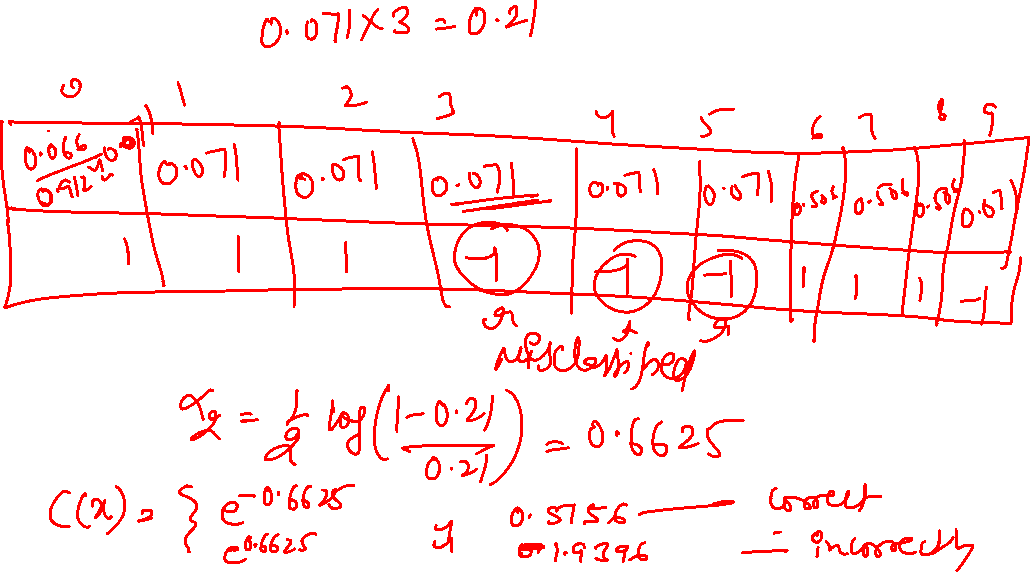 0.071×3 = 0.21
0 1 2 3 4 5 6 7 8 9
0.066/0.912 0.071 0.071 0.071 0.071 0.071 0.506 0.506 0.506 0.071
1 1 1 -1 -1 -1 1 1 1 -1
misclassified
α₂ = 1/2 log(1-0.21/0.21) = 0.6625
C(x) = { e^-0.6625 0.5156 correct
e^0.6625 1.9396 = incorrectly